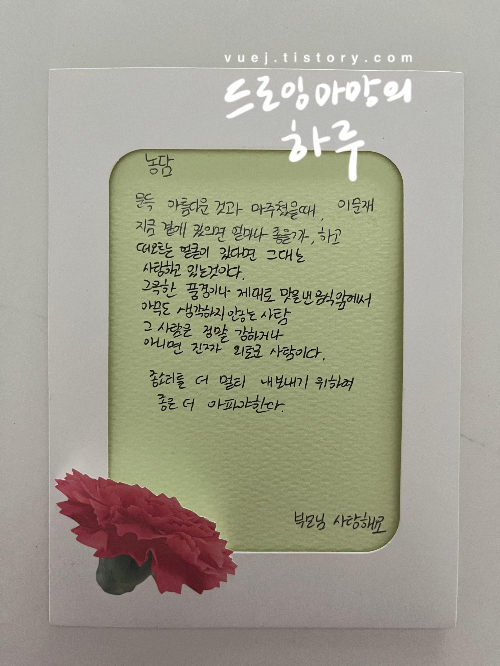 vuej.tistory.com
드로잉마망의
하루
농담
이문재
문득 아름다운 것과 마주쳤을때,
지금 곁에 있으면 얼마나 좋을까, 하고
떠오르는 얼굴이 있다면 그대는
사랑하고 있는것이다.
그윽한 풍경이나 제대로 맛을낸 음식앞에서
아무도 생각하지 않는 사람
그 사람은 정말 강하거나
아니면 진짜 외로운 사람이다.
종소리를 더 멀리 내보내기 위하여
종은 더 아파야한다.
부모님 사랑해요